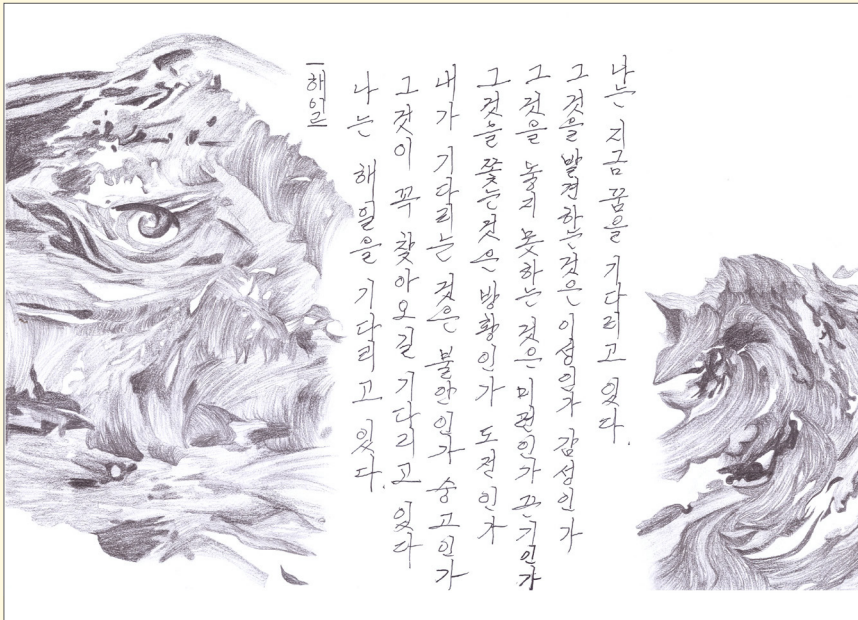 나는 지금 꿈을 기다리고 있다.
그것을 발견하는것은 이성인가 감성인가
그것을 놓지 못하는 것은 미련인가 끈기인가
그것을 쫓는것은 방황인가 도전인가
내가 기다리는 것은 불안인가 숭고인가
그것이 꼭 찾아오길 기다리고 있다
나는 해일을 기다리고 있다.
|해일|